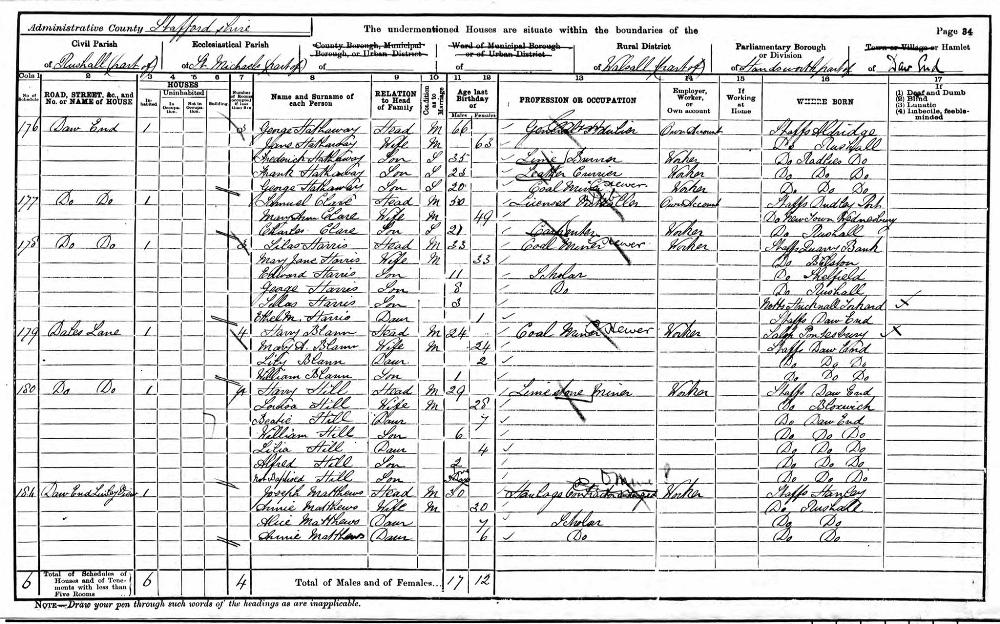 Administrative County Staffordshire The undermentioned Houses are situate within the boundaries of the Page 34
Civil Parish Ecclesiastical Parish County Borough, Municipal Borough, or Urban District Ward of Municipal Borough or of Urban District Rural District Parliamentary Borough or Division Town or Village or Hamlet
of Rushall (part of) of St. Michaels (part of) of of of Walsall (part of) of Handsworth part of of Daw End
Cols. 1 2 3 4 5 6 7 8 9 10 11 12 13 14 15 16 17
No. of Schedule ROAD, STREET, &c., and No. or NAME of HOUSE HOUSES Inhabited Uninhabited In Occupation Not in Occupation Building Name and Surname of each Person RELATION to Head of Family Condition as to Marriage Age last Birthday of Males Females PROFESSION OR OCCUPATION Employer, Worker, or Own account If Working at Home WHERE BORN If (1) Deaf and Dumb (2) Blind (3) Lunatic (4) Imbecile, feeble-minded
176 Daw End 1 3 George Hathaway Head M 66 General Own Account Staffs Aldridge
Jane Hathaway Wife M 63 Do Rushall
Frederick Hathaway Son S 35 Lime Burner Worker Do Do
Frank Hathaway Son S 23 Leather Currier Worker Do Do Do
George Hathaway Son S 20 Coal Miner Hewer Worker Do Do Do
177 Do Do 1 Samuel Clare Head M 50 Licensed Own Account Staffs Dudley Port
Mary Ann Clare Wife M 49 Do New Town Wednesbury
Charles Clare Son S 21 Carpenter Worker Do Rushall
178 Do Do 1 3 Silas Harris Head M 33 Coal Miner Hewer Worker Staffs Quarry Bank
Mary Jane Harris Wife M 33 Do Bilston
Edward Harris Son 11 Scholar Do Shelfield
George Harris Son 8 Do Do Rushall
Silas Harris Son 3 Notts Hucknall Torkard
Ethel M. Harris Daur 1 Staffs Daw End
179 Bates Lane 1 4 Harry Blann Head M 24 Coal Miner Hewer Worker Salop Pontesbury
Mary A. Blann Wife M 24 Staffs Daw End
Lily Blann Daur 2 Do Do Do
William Blann Son 1 Do Do Do
180 Do Do 1 4 Harry Hill Head M 29 Limestone Miner Worker Staffs Daw End
Hill Wife M 28 Do Bloxwich
Beatie Hill Daur 7 Do Daw End
William Hill Son 6 Do Do Do
Lilia Hill Daur 4 Do Do Do
Alfred Hill Son 2 Do Do Do
Not Baptised Hill Son Do Do Do
181 Daw End 1 Joseph Matthews Head M 30 Haulage Worker Staffs
Annie Matthews Wife M 30 Do Rushall
Alice Matthews Daur 7 Scholar Do Do
Annie Matthews Daur 6 Do Do Do
6 Total of Schedules of Houses and of Tenements with less than Five Rooms 6 4 Total of Males and of Females... 17 12
NOTE—Draw your pen through such words of the headings as are inapplicable.